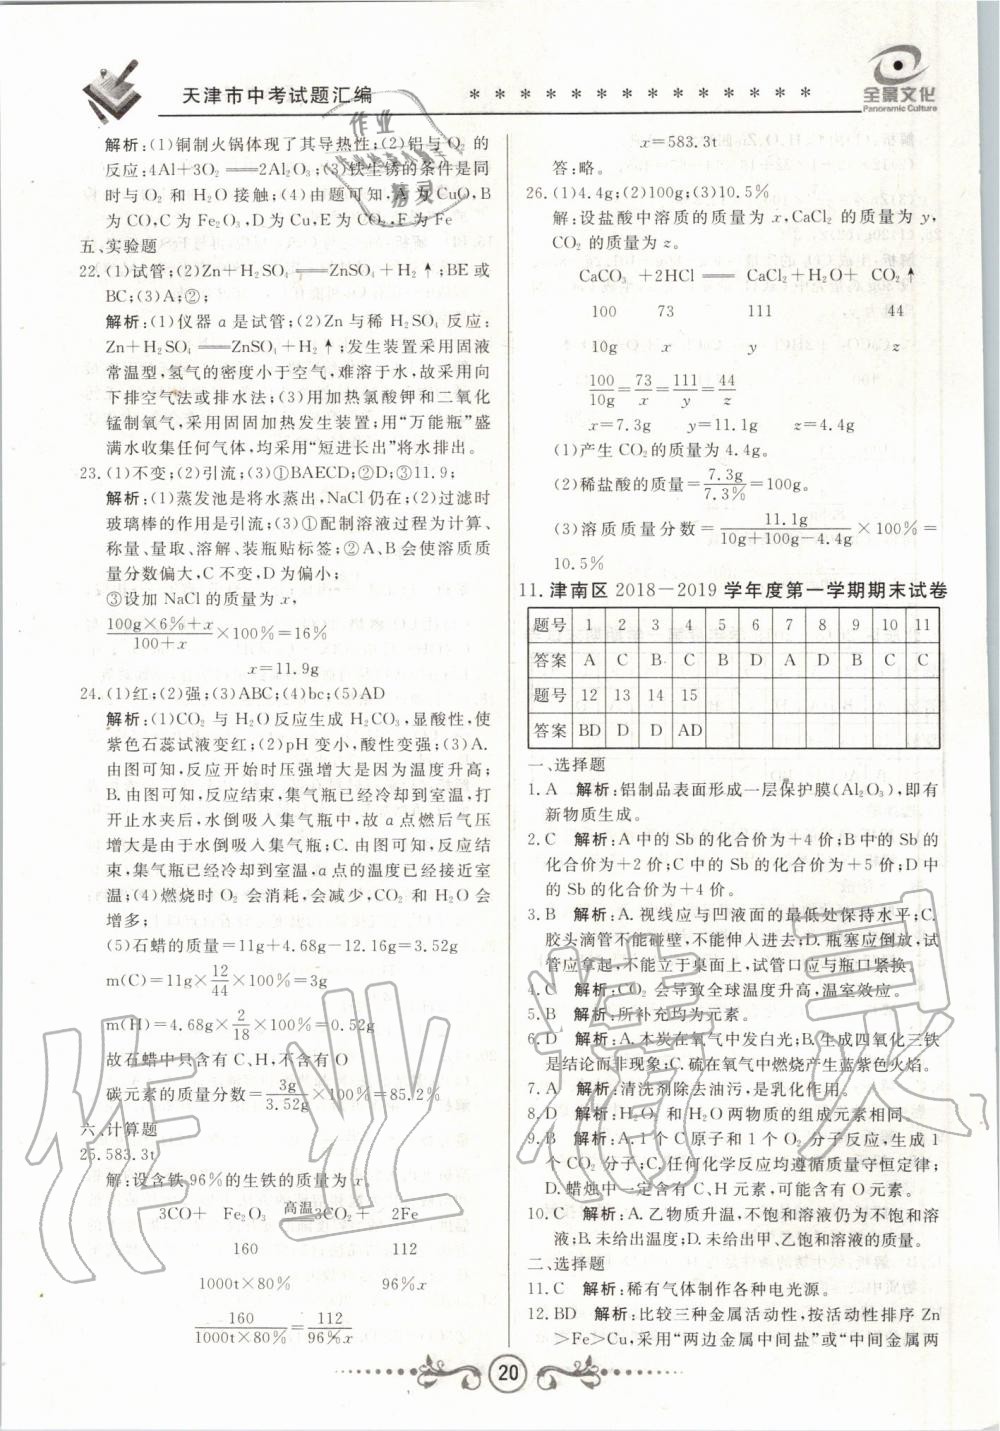 天津市中考试题汇编
* * * * * * * * * * * * * * *
全景文化
Panoramic Culture
解析:(1)铜制火锅体现了其导热性;(2)铝与O₂的
反应:4Al+3O₂══2Al₂O₃;(3)铁生锈的条件是同
时与O₂和H₂O接触;(4)由题可知,A为CuO,B
为CO,C为Fe₂O₃,D为Cu,E为CO₂,F为Fe
五、实验题
22.(1)试管;(2)Zn+H₂SO₄══ZnSO₄+H₂↑;BE或
BC;(3)A;②;
解析:(1)仪器a是试管;(2)Zn与稀H₂SO₄反应:
Zn+H₂SO₄══ZnSO₄+H₂↑;发生装置采用固液
常温型,氢气的密度小于空气,难溶于水,故采用向
下排空气法或排水法;(3)用加热氯酸钾和二氧化
锰制氧气,采用固固加热发生装置;用“万能瓶”盛
满水收集任何气体,均采用“短进长出”将水排出。
23.(1)不变;(2)引流;(3)①BAECD;②D;③11.9;
解析:(1)蒸发池是将水蒸出,NaCl仍在;(2)过滤时
玻璃棒的作用是引流;(3)①配制溶液过程为计算、
称量、量取、溶解、装瓶贴标签;②A、B会使溶质质
量分数偏大,C不变,D为偏小;
③设加NaCl的质量为x,
(100g×6%+x)/(100+x)×100%=16%
x=11.9g
24.(1)红;(2)强;(3)ABC;(4)bc;(5)AD
解析:(1)CO₂与H₂O反应生成H₂CO₃,显酸性,使
紫色石蕊试液变红;(2)pH变小,酸性变强;(3)A.
由图可知,反应开始时压强增大是因为温度升高;
B.由图可知,反应结束,集气瓶已经冷却到室温,打
开止水夹后,水倒吸入集气瓶中,故a点燃后气压
增大是由于水倒吸入集气瓶;C.由图可知,反应结
束,集气瓶已经冷却到室温,a点的温度已经接近室
温;(4)燃烧时O₂会消耗,会减少,CO₂和H₂O会
增多;
(5)石蜡的质量=11g+4.68g-12.16g=3.52g
m(C)=11g×12/44×100%=3g
m(H)=4.68g×2/18×100%=0.52g
故石蜡中只含有C、H,不含有O
碳元素的质量分数=3g/3.52g×100%=85.2%
六、计算题
25.583.3t
解:设含铁96%的生铁的质量为x,
3CO+ Fe₂O₃ 高温 3CO₂+ 2Fe
160 112
1000t×80% 96%x
160/(1000t×80%)=112/(96%x)
x=583.3t
答:略。
26.(1)4.4g;(2)100g;(3)10.5%
解:设盐酸中溶质的质量为x,CaCl₂的质量为y,
CO₂的质量为z。
CaCO₃ +2HCl══CaCl₂+H₂O+ CO₂↑
100 73 111 44
10g x y z
100/10g=73/x=111/y=44/z
x=7.3g y=11.1g z=4.4g
(1)产生CO₂的质量为4.4g。
(2)稀盐酸的质量=7.3g/7.3%=100g。
(3)溶质质量分数=11.1g/(10g+100g-4.4g)×100%=
10.5%
11.津南区2018-2019学年度第一学期期末试卷
题号 1 2 3 4 5 6 7 8 9 10 11
答案 A C B C B D A D B C C
题号 12 13 14 15
答案 BD D D AD
一、选择题
1.A 解析:铝制品表面形成一层保护膜(Al₂O₃),即有
新物质生成。
2.C 解析:A中的Sb的化合价为+4价;B中的Sb的
化合价为+2价;C中的Sb的化合价为+5价;D中
的Sb的化合价为+4价。
3.B 解析:A.视线应与凹液面的最低处保持水平;C.
胶头滴管不能碰壁,不能伸入进去;D.瓶塞应倒放,试
管应拿起,不能立于桌面上,试管口应与瓶口紧挨。
4.C 解析:CO₂会导致全球温度升高,温室效应。
5.B 解析:所补充均为元素。
6.D 解析:A.木炭在氧气中发白光;B.生成四氧化三铁
是结论而非现象;C.硫在氧气中燃烧产生蓝紫色火焰。
7.A 解析:清洗剂除去油污,是乳化作用。
8.D 解析:H₂O₂和H₂O两物质的组成元素相同。
9.B 解析:A.1个C原子和1个O₂分子反应,生成1
个CO₂分子;C.任何化学反应均遵循质量守恒定律;
D.蜡烛中一定含有C、H元素,可能含有O元素。
10.C 解析:A.乙物质升温,不饱和溶液仍为不饱和溶
液;B.未给出温度;D.未给出甲、乙饱和溶液的质量。
二、选择题
11.C 解析:稀有气体制作各种电光源。
12.BD 解析:比较三种金属活动性,按活动性排序Zn
>Fe>Cu,采用“两边金属中间盐”或“中间金属两
20
作业精灵